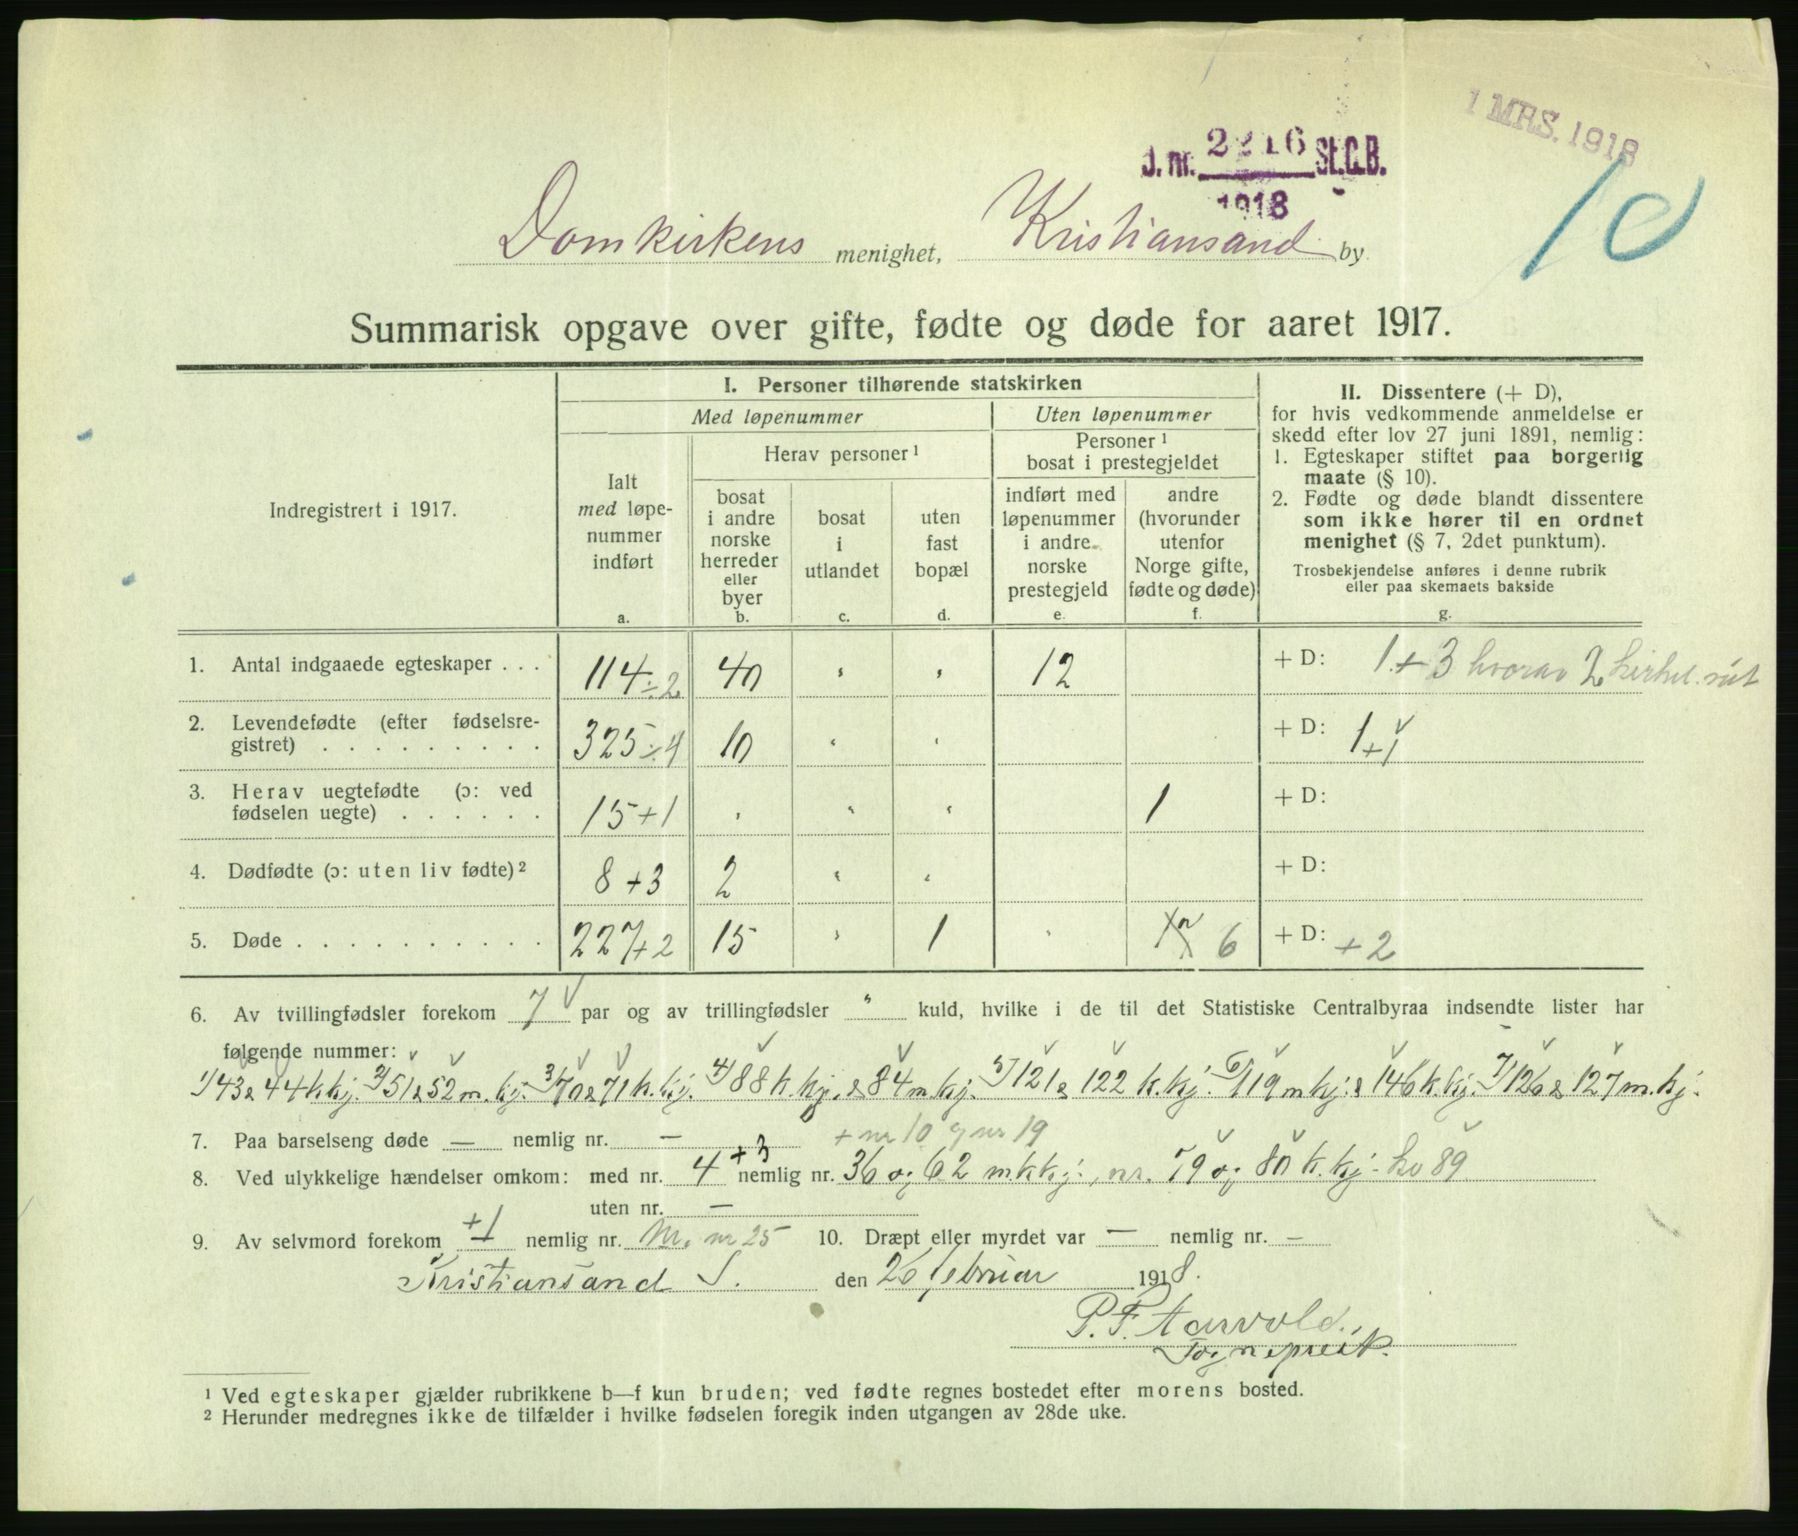 1 MRS. 1918
J. nr. 2216 St.C.B.
1918
10
Domkirkens menighet, Kristiansand by
Summarisk opgave over gifte, fødte og døde for aaret 1917.
Indregistrert i 1917.
I. Personer tilhørende statskirken
Med løpenummer
Uten løpenummer
Ialt
med løpe-
nummer
indført
a.
Herav personer 1
bosat
i andre
norske
herreder
eller
byer
b.
bosat
i
utlandet
c.
uten
fast
bopæl
d.
Personer 1
bosat i prestegjeldet
indført med
løpenummer
i andre
norske
prestegjeld
e.
andre
(hvorunder
utenfor
Norge gifte,
fødte og døde)
f.
II. Dissentere (+ D),
for hvis vedkommende anmeldelse er
skedd efter lov 27 juni 1891, nemlig:
1. Egteskaper stiftet paa borgerlig
maate (§ 10).
2. Fødte og døde blandt dissentere
som ikke hører til en ordnet
menighet (§ 7, 2det punktum).
Trosbekjendelse anføres i denne rubrik
eller paa skemaets bakside
g.
1. Antal indgaaede egteskaper . . . 114 ÷ 2 40 " " 12 + D: 1 + 3 hvorav 2 kirkel.
2. Levendefødte (efter fødselsre-
gistret) . . . . . . . . . 325 ÷ 4 10 " " + D: 1 + 1
3. Herav uegtefødte (ɔ: ved
fødselen uegte) . . . . . . 15 + 1 " " " 1 + D:
4. Dødfødte (ɔ: uten liv fødte) 2 8 + 3 2 " " + D:
5. Døde . . . . . . . . . . 227 + 2 15 " 1 " 6 + D: + 2
6. Av tvillingfødsler forekom 7 par og av trillingfødsler " kuld, hvilke i de til det Statistiske Centralbyraa indsendte lister har
følgende nummer:
1/ 43 & 44 k.kj. 2/ 51 & 52 m.kj. 3/ 70 & 71 k.kj. 4/ 88 k.kj. & 84 m.kj. 5/ 121 & 122 k.kj. 6/ 119 m kj. & 146 k.kj. 7/ 126 & 127 m.kj.
7. Paa barselseng døde — nemlig nr. — + nr 10 og nr 19
8. Ved ulykkelige hændelser omkom: med nr. 4 + 3 nemlig nr. 36 og 62 m.kkj., nr. 79 og 80 k.kj. 89
uten nr. —
9. Av selvmord forekom +1 nemlig nr. nr 25 10. Dræpt eller myrdet var — nemlig nr. —
Kristiansand S. den 26 februar 1918.
P. F. Aarvold.
Sogneprest.
1 Ved egteskaper gjælder rubrikkene b—f kun bruden; ved fødte regnes bostedet efter morens bosted.
2 Herunder medregnes ikke de tilfælder i hvilke fødselen foregik inden utgangen av 28de uke.